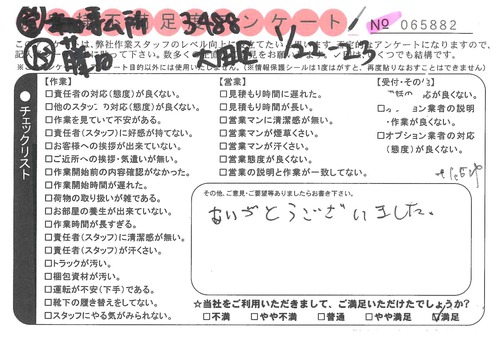 足 ンケート! No 065882
3488
1/22
このアンケートは、弊社作業スタッフのレベル向上
ご記入
【作業】
□責任者の対応(態度)が良くない。
□他のスタッフの対応(態度)が良くない。
□作業を見ていて不安がある。
□責任者(スタッフ)に好感が持てない。
□お客様への挨拶が出来ていない。
□ご近所への挨拶・気遣いが無い。
□作業開始前の内容確認がなかった。
□作業開始時間が遅れた。
□荷物の取り扱いが雑である。
□お部屋の養生が出来ていない。
□作業時間が長すぎる。
□責任者(スタッフ)に清潔感が無い。
□責任者(スタッフ)が汗くさい。
□トラックが汚い。
□梱包資材が汚い。
□運転が不安(下手)である。
□靴下の履き替えをしてない。
□スタッフにやる気がみられない。
【営業】
□見積もり時間に遅れた。
□見積もり時間が長い。
□営業マンに清潔感が無い。
□営業マンが煙草くさい。
□営業マンが汗くさい。
□営業態度が良くない。
□営業の説明と作業が一致してない。
【受付・その他】
の応対が良くない。
ョン業者の説明
・作業が良くない。
□オプション業者の対応
(態度)が良くない。
チェックリスト
その他、ご意見・ご要望等ありましたらお書き下さい。
ありがとうございました。
☆当社をご利用いただきまして、ご満足いただけたでしょうか?
□不満 □やや不満 □普通 □やや満足 ☑満足